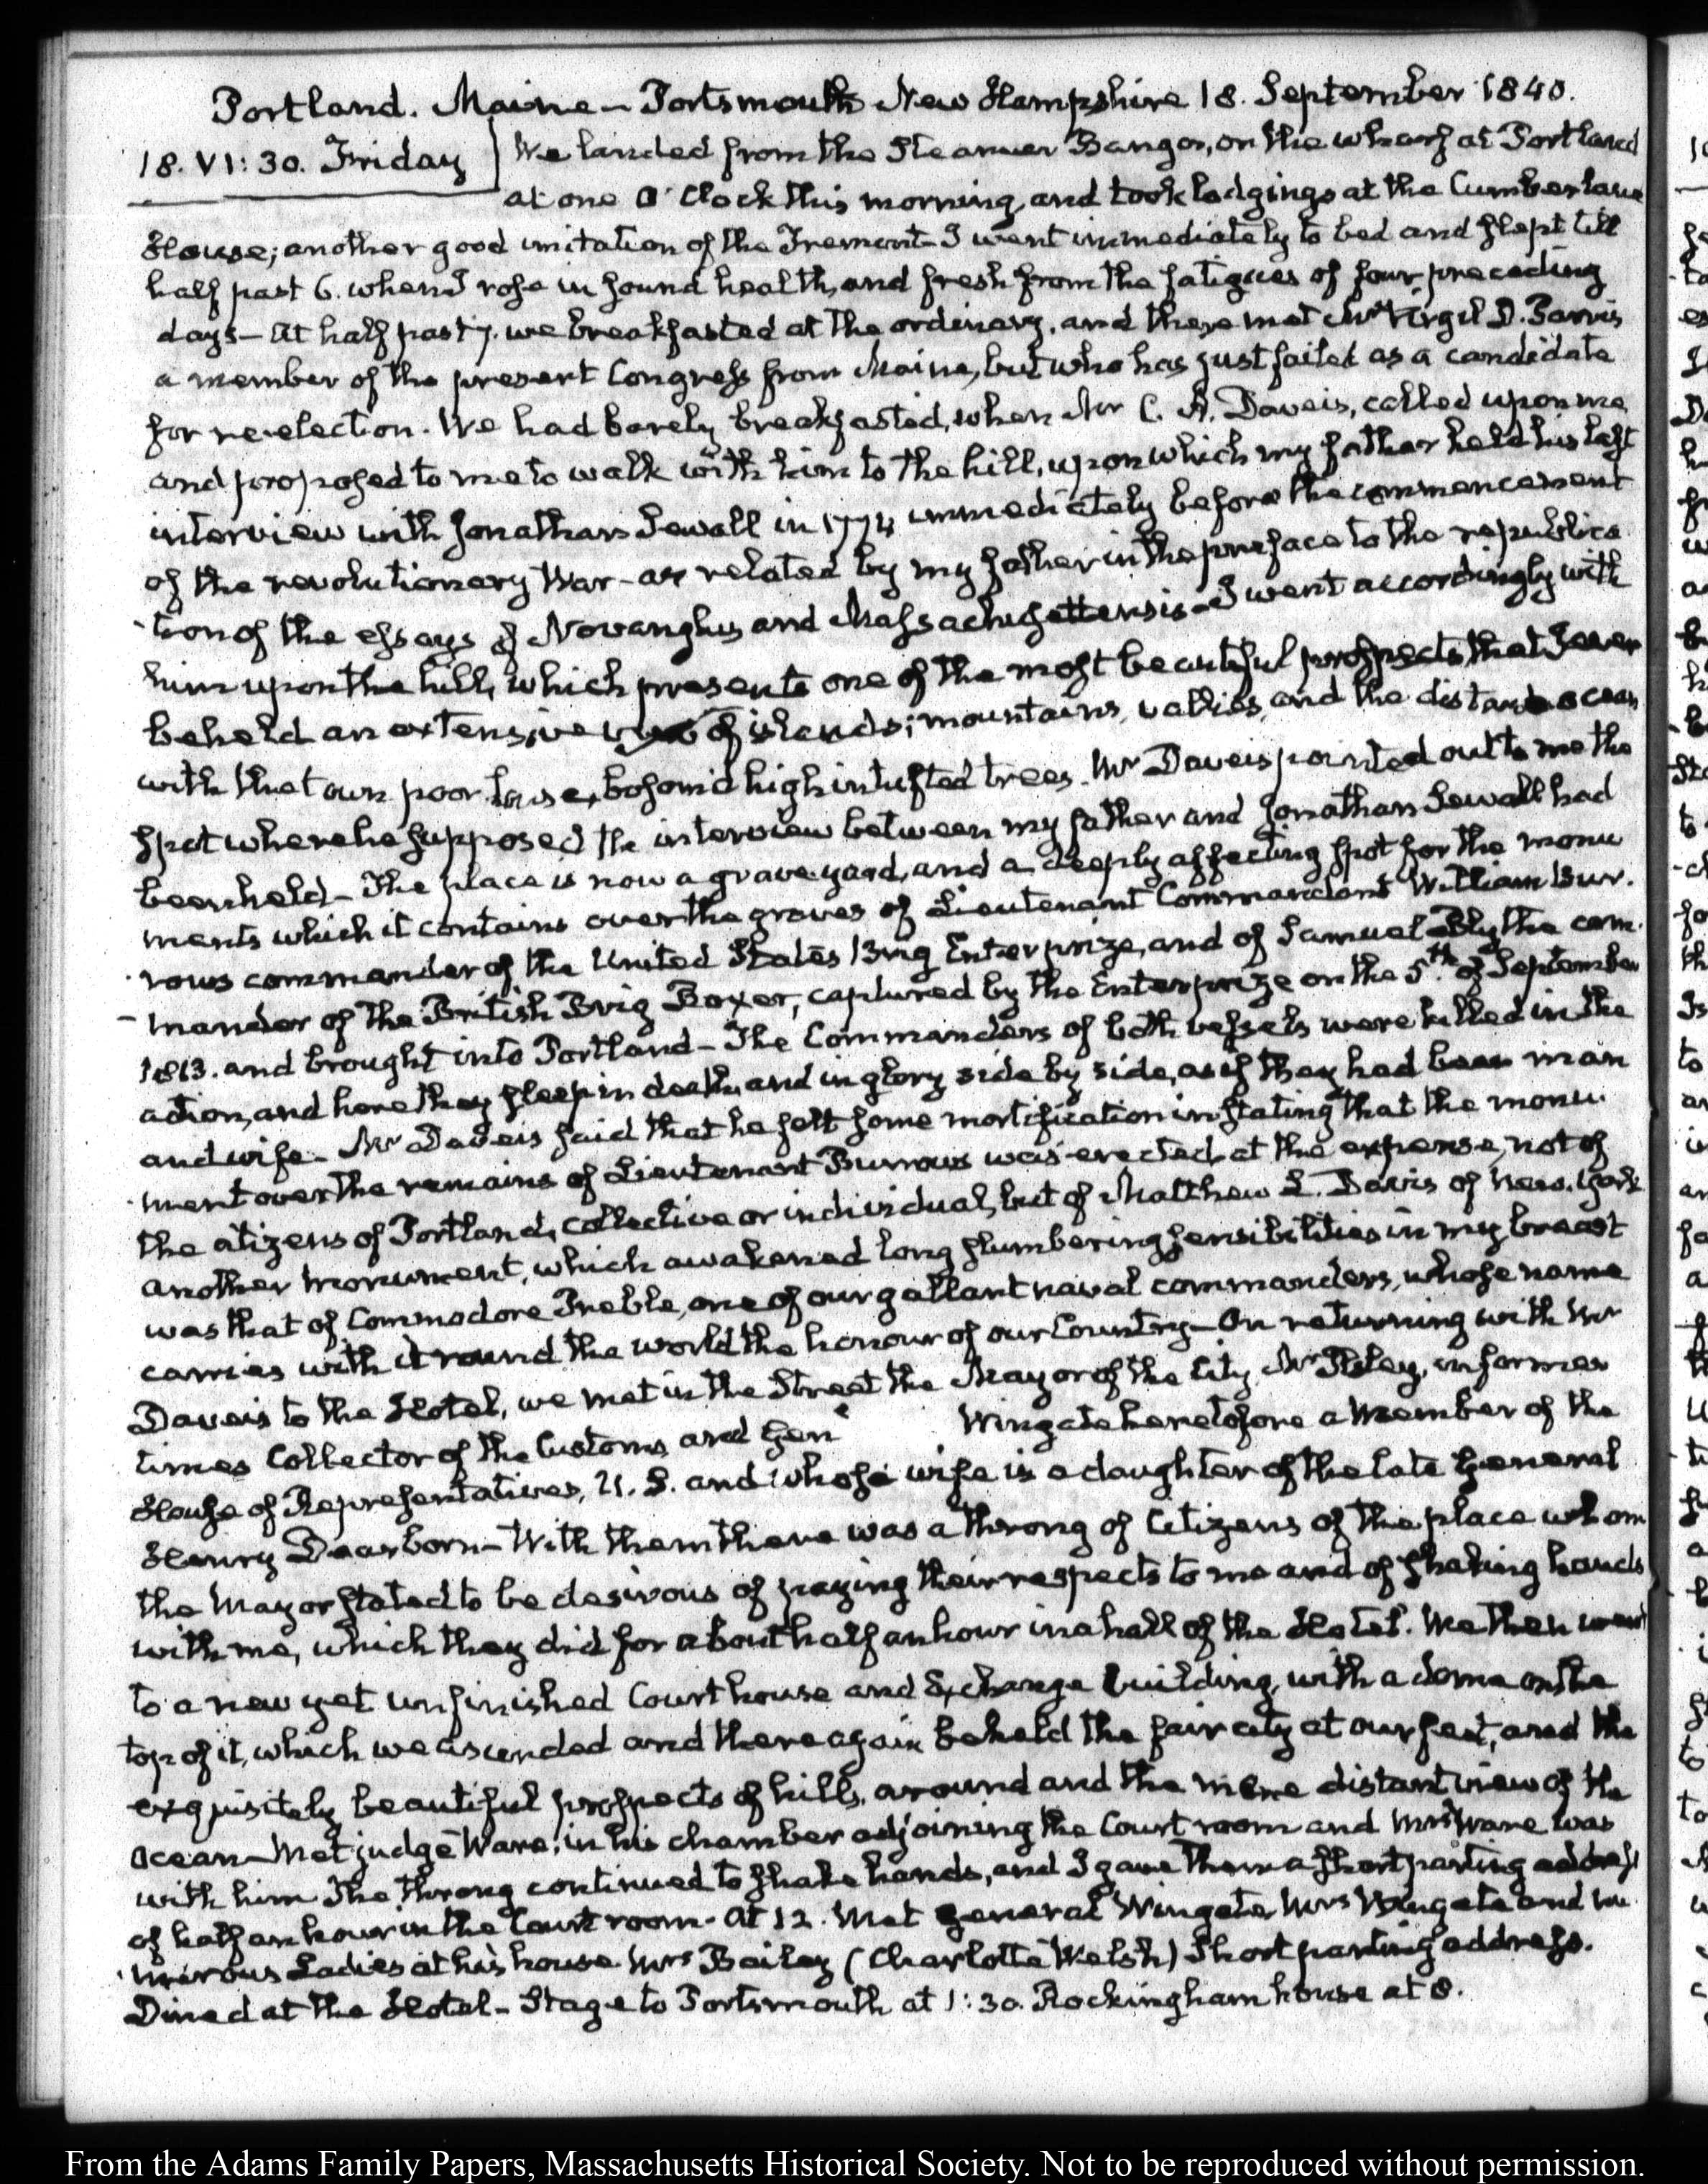 Portland. Maine — Portsmouth New Hampshire 18. September 1840.
18. VI: 30. Friday } We landed from the Steamer Bangor, on the wharf at Portland
at one O'Clock this morning, and took lodgings at the Cumberland
House; another good imitation of the Tremont — I went immediately to bed and slept till
half past 6. when I rose in sound health, and fresh from the fatigues of four preceding
days — At half past 7. we breakfasted at the ordinary, and there met Mr Virgil D. Parris
a member of the present Congress from Maine, but who has just failed as a candidate
for re-election. We had barely breakfasted, when Mr C. S. Daveis, called upon me
and proposed to me to walk with him to the hill, upon which my father held his last
interview with Jonathan Sewall in 1774 immediately before the commencement
of the revolutionary War — as related by my father in the preface to the republica
-tion of the essays of Novanglus and Massachusettensis — I went accordingly with
him upon the hill, which presents one of the most beautiful prospects that I ever
beheld an extensive view of islands; mountains, vallies, and the distant ocean
with the town bosom'd high in tufted trees. Mr Daveis pointed out to me the
spot where he supposed the interview between my father and Jonathan Sewall had
been held — The place is now a grave yard, and a deeply affecting spot for the monu
ments which it contains over the graves of Lieutenant Commandant William Bur.
-rows commander of the United States Brig Enterprize, and of Samuel Bly the com.
-mander of the British Brig Boxer, captured by the Enterprize on the 5th. of September
1813. and brought into Portland — The Commanders of both vessels were killed in the
action, and here they sleep in death, and in glory side by side, as if they had been man
and wife — Mr Daveis said that he felt some mortification in stating that the monu.
-ment over the remains of Lieutenant Burrows was erected at the expense, not of
the citizens of Portland, collective or individual, but of Matthew L. Davis of New-York
another Monument, which awakened long slumbering sensibilities in my breast
was that of Commodore Preble, one of our gallant naval commanders, whose name
carries with it round the world the honour of our Country — On returning with Mr
Daveis to the Hotel, we met in the Street the Mayor of the City, Mr Ilsley, in former
times Collector of the Customs and Genl Wingate heretofore a Member of the
House of Representatives, U.S. and whose wife is a daughter of the late General
Henry Dearborn — With them there was a throng of Citizens of the place whom
the Mayor stated to be desirous of paying their respects to me and of shaking hands
with me, which they did for about half an hour in a hall of the Hotel. We then went
to a new yet unfinished Court house and Exchange building, with a dome on the
top of it, which we ascended and there again beheld the fair city at our feet, and the
exquisitely beautiful prospects of hills, around and the more distant view of the
ocean — Met judge Ware, in his chamber adjoining the Court room and Mrs Ware was
with him The throng continued to shake hands, and I gave them a short parting address
of half an hour in the Court room. At 12. Met General Wingate, Mrs Wingate and nu
-merous Ladies at his house Mrs Bailey (Charlotte Welsh) Short parting address.
Dined at the Hotel — Stage to Portsmouth at 1:30. Rockingham house at 8.
From the Adams Family Papers, Massachusetts Historical Society. Not to be reproduced without permission.